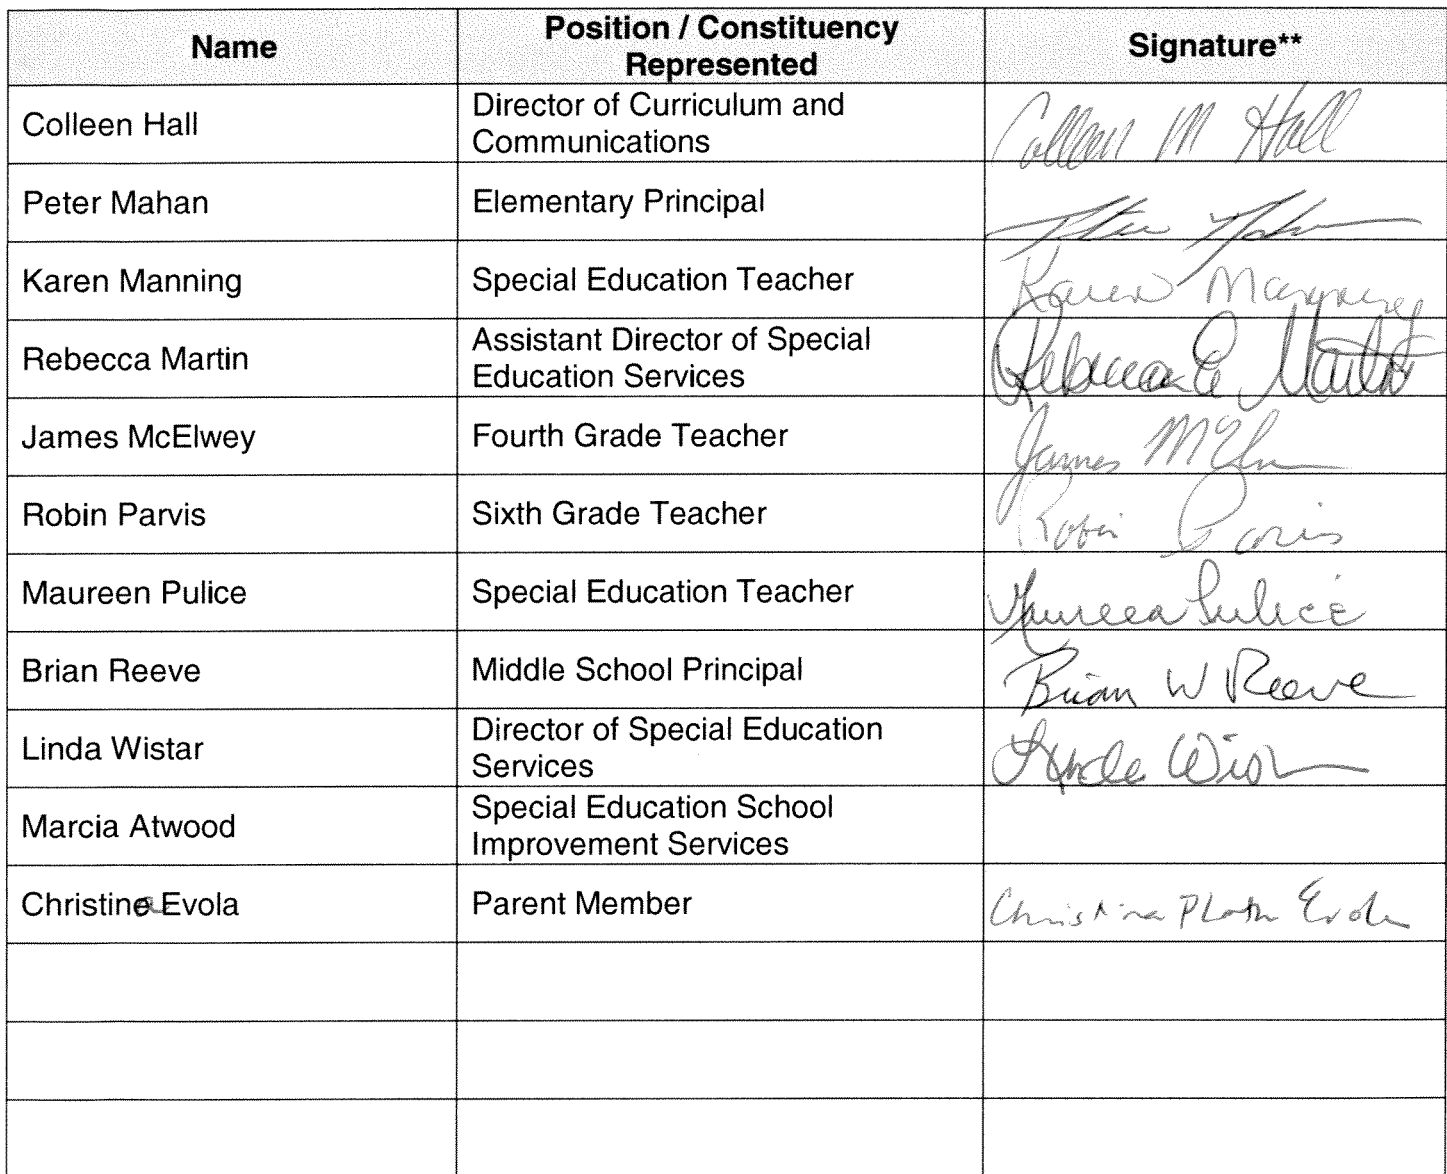 Name
Position / Constituency
Represented
Signature**
Colleen Hall
Director of Curriculum and
Communications
Colleen M Hall
Peter Mahan
Elementary Principal
Karen Manning
Special Education Teacher
Karen Manning
Rebecca Martin
Assistant Director of Special
Education Services
Rebecca E Martin
James McElwey
Fourth Grade Teacher
James McElw
Robin Parvis
Sixth Grade Teacher
Robin Parvis
Maureen Pulice
Special Education Teacher
Maureen Pulice
Brian Reeve
Middle School Principal
Brian W Reeve
Linda Wistar
Director of Special Education
Services
Linda Wistar
Marcia Atwood
Special Education School
Improvement Services
Christina Evola
Parent Member
Christina Evola